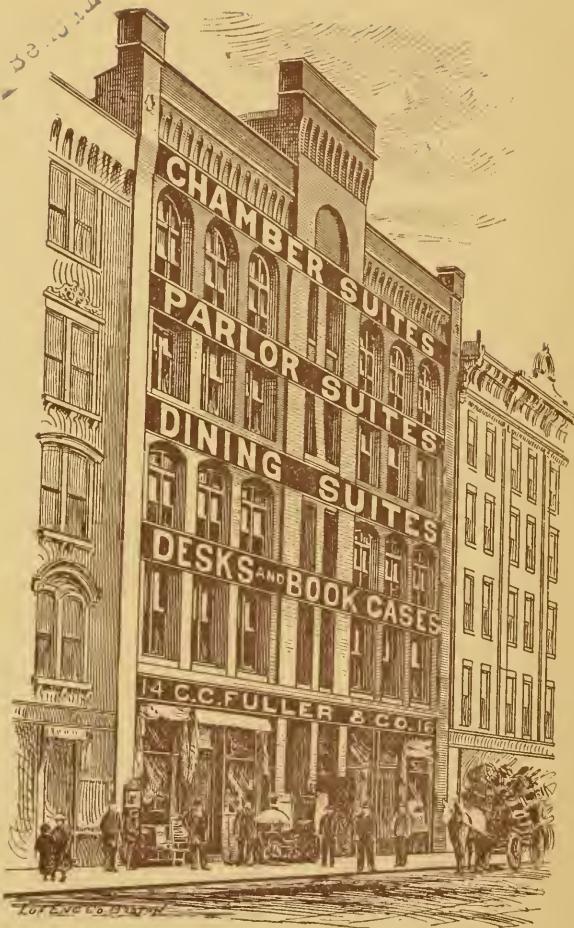 CHAMBER SUITES
PARLOR SUITES
DINING SUITES
DESKS AND BOOK CASES
14 C.C. FULLER & CO. 16
ENG CO. BOSTON